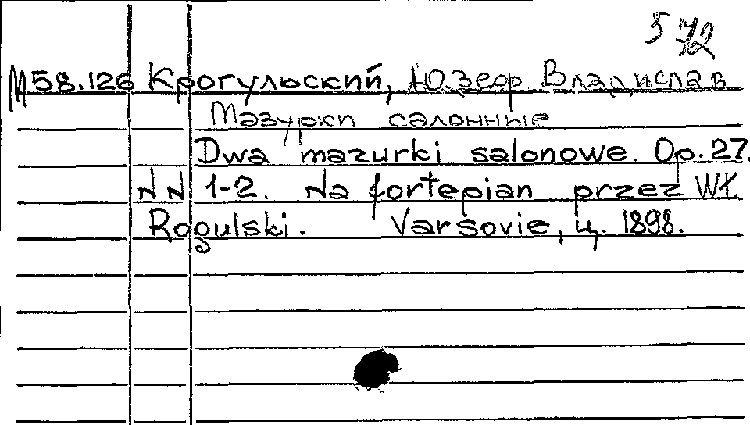 572
М58.126 Крогульский, Юзеф Владислав
Мазурки салонные
Dwa mazurki salonowe. Op. 27.
NN 1-2. Na fortepian przez Wł.
Rogulski. Varsovie, ц. 1898.